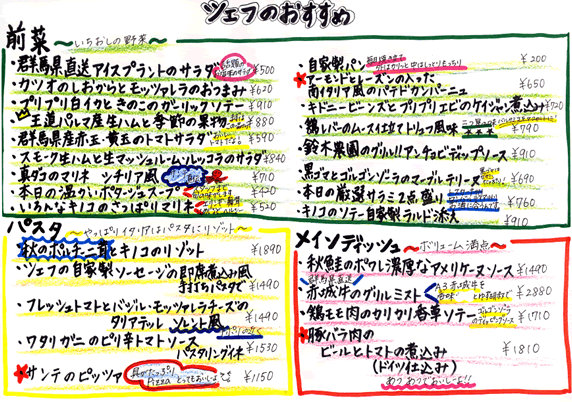 シェフのおすすめ
前菜 〜いちおしの野菜〜
・群馬県直送アイスプラントのサラダ ¥500
・カツオのしおからとモッツァレラのおつまみ ¥620
・プリプリ白イカときのこのガーリックソテー ¥910
・王道パルマ産生ハムと季節の果物 ¥880
・群馬県産赤玉・黄玉のトマトサラダ ¥590
・スモーク生ハムと生マッシュルーム・ルッコラのサラダ ¥840
・真ダコのマリネ シチリア風 ¥710
・本日の温かいポタージュスープ ¥420
・いろんなキノコのさっぱりマリネ ¥520
・自家製パン ¥200
★アーモンドとレーズンの入った
南イタリア風のパテドカンパーニュ ¥650
・キドニービーンズとプリプリエビのケイジャン煮込み ¥720
・鶏レバーのムース仕立てトリュフ風味 ¥790
・鈴木農園のグリル!!アンチョビディップソース ¥910
・黒ゴマとゴルゴンゾーラのマーブルテリーヌ ¥690
・本日の厳選サラミ2点盛り ¥760
・キノコのソテー自家製ラルド添え ¥910
パスタ 〜やっぱりイタリアはパスタにリゾット〜
秋のポルチーニ茸とキノコのリゾット ¥1890
・シェフの自家製ソーセージの即席煮込み風
手打ちパスタで ¥1490
・フレッシュトマトとバジル・モッツァレラチーズの
タリアテッレ ソレント風 ¥1490
・ワタリガニのピリ辛トマトソース
パスタリングイネ ¥1530
★サンテのピッツァ 具がたっぷり Pizza とってもおいしいよ ¥1150
メインディッシュ 〜ボリューム満点〜
・秋鮭のポワレ濃厚なアメリケーヌソース ¥1490
群馬県直送
・赤城牛のグリルミスト ¥2880
・鶏モモ肉のカリカリ香草ソテー ¥1710
★豚バラ肉の
ビールとトマトの煮込み ¥1810
(ドイツ仕込み)
あつあつでおいしーよ!!